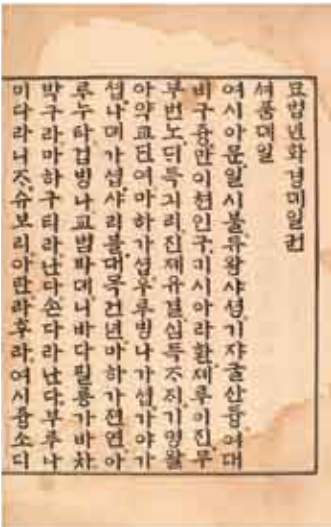 묘법년화경뎨일권
셔품뎨일
여시아문일시불듀왕샤셩기쟈굴산듕여대
비구즁만이쳔인구ᄀᆡ시아라한졔루이진무
부번노ᄃᆡ득긔리진졔유결심득ᄌᆞᄌᆡ기명왈
아약교딘여마하가셥우루빙나가셥가야가
셥나뎨가셥샤리불대목건년마하가젼연아
루누타겁빙나교범바뎨니바다필릉가바차
박구라마하구티라난다손다라난다부루나
미다라니ᄌᆞ슈보리아란라후라여시즁소디